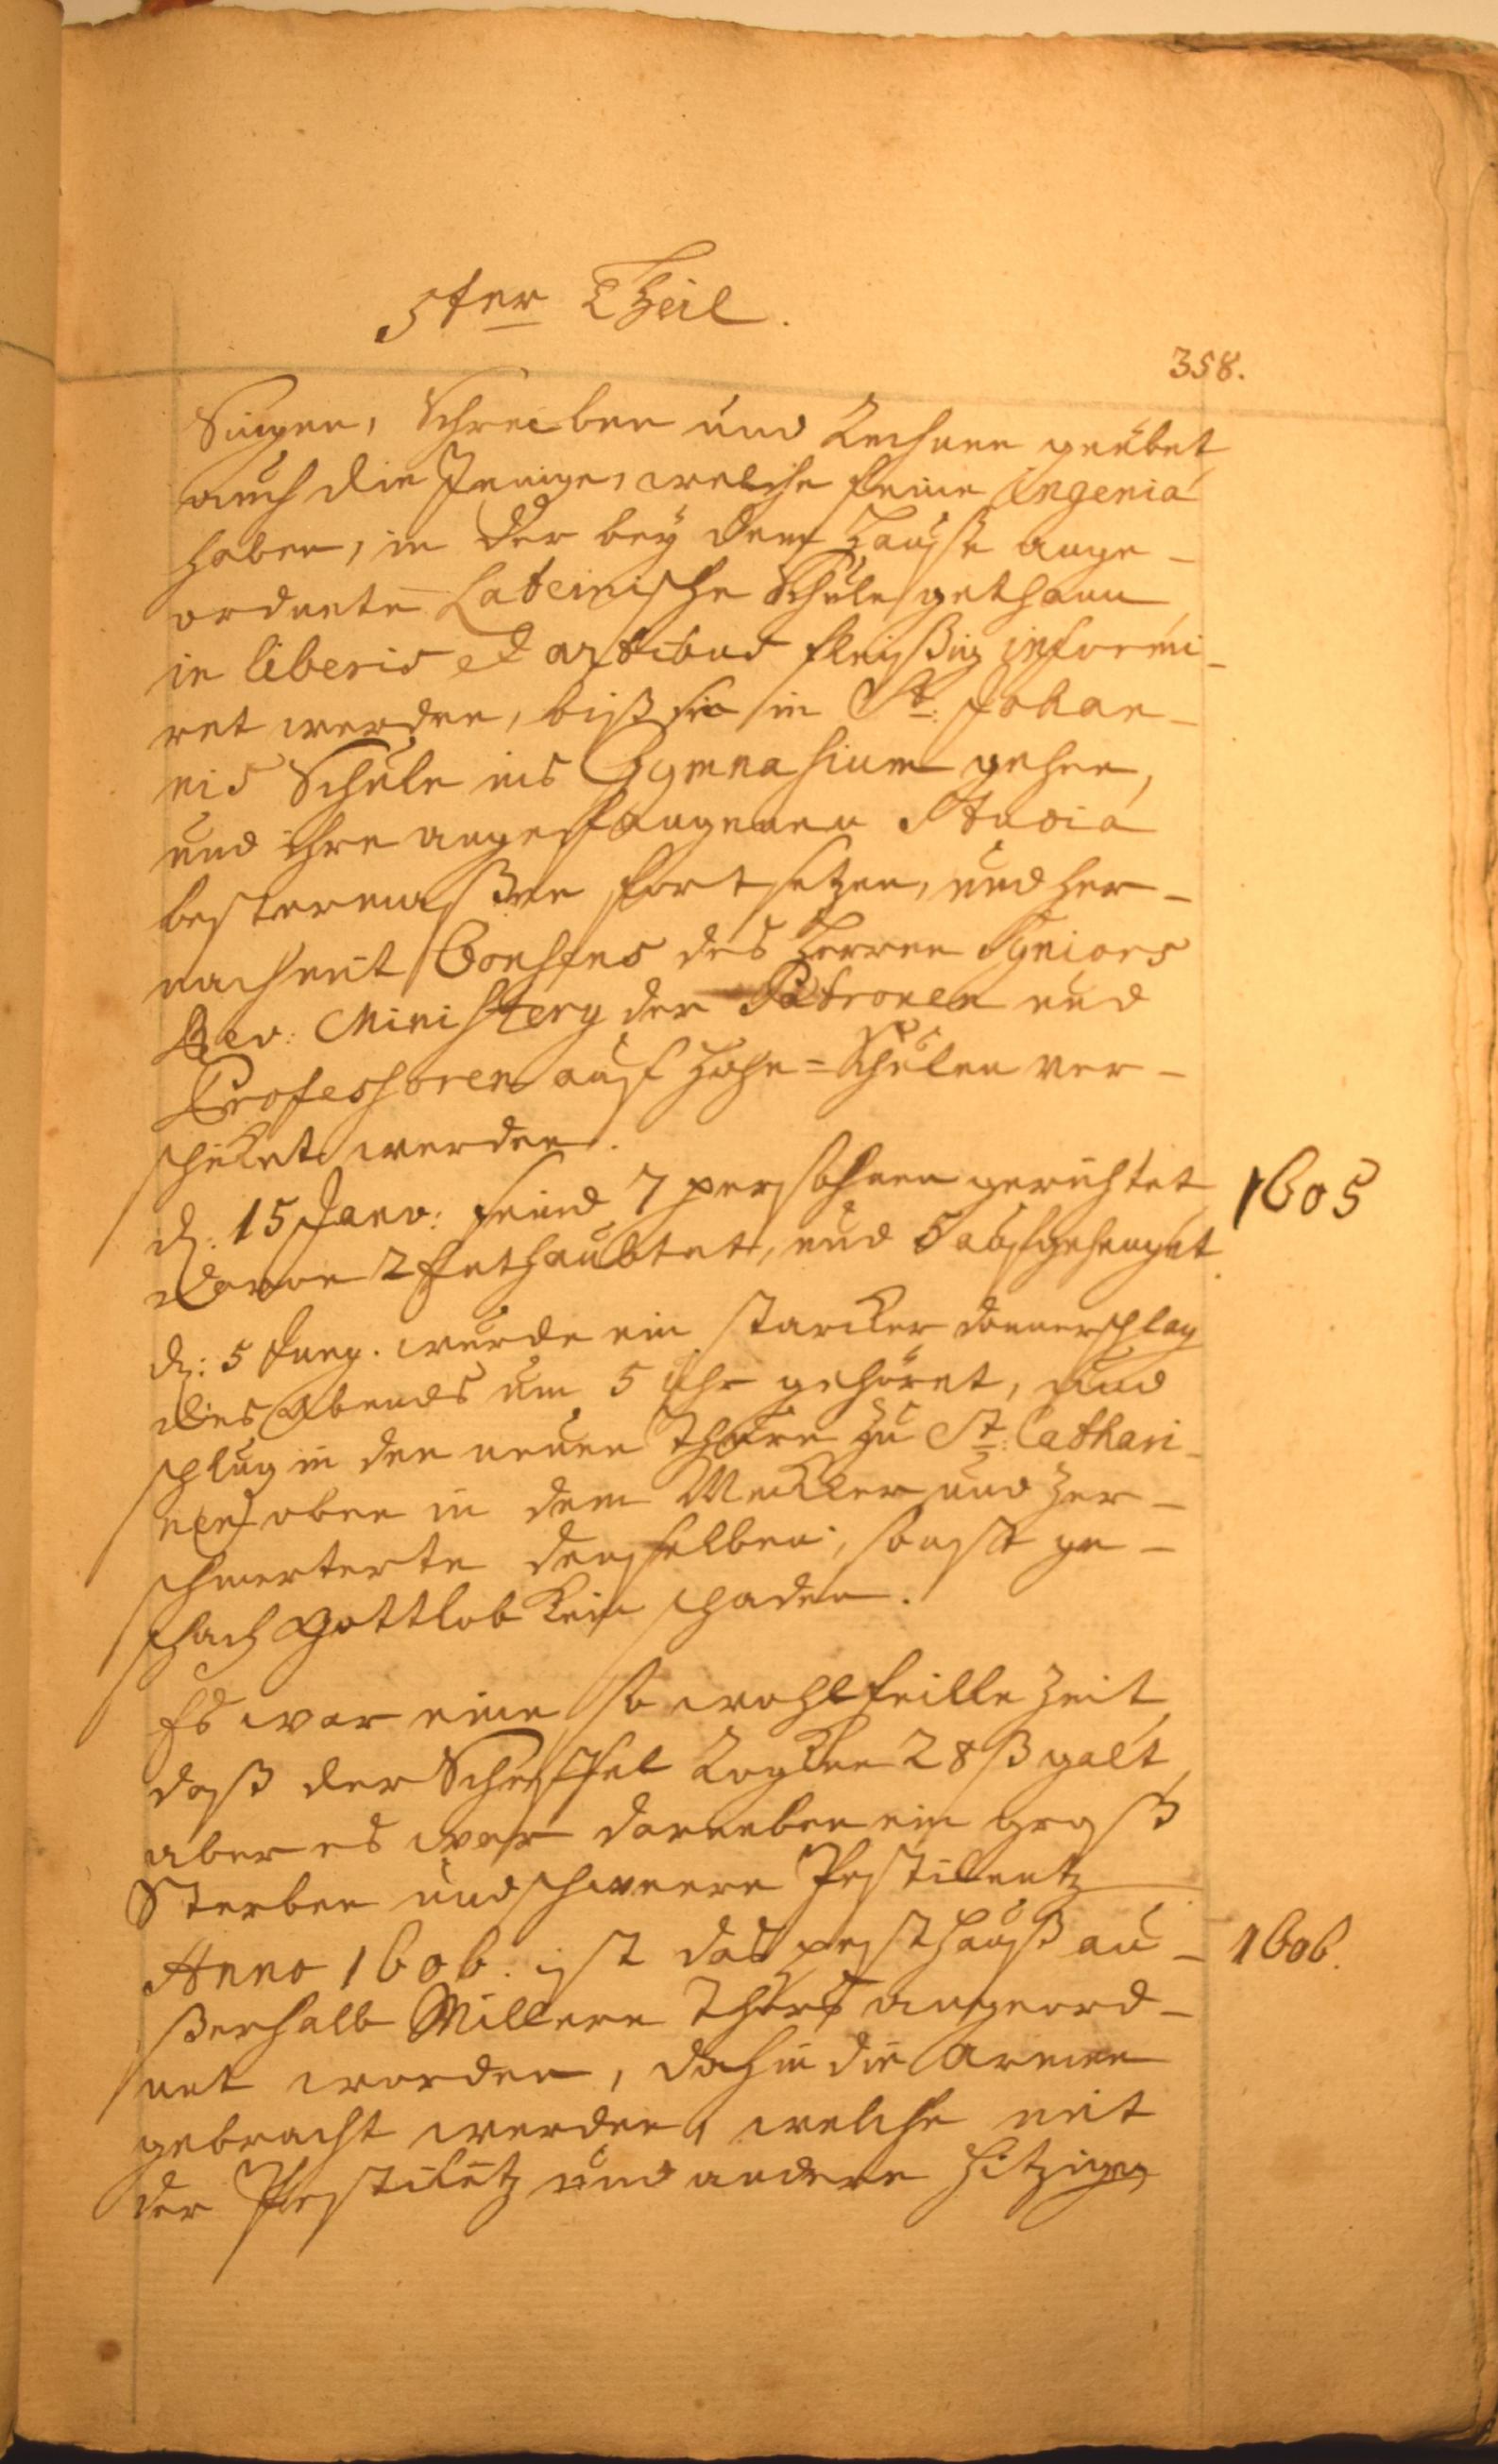 5ter Theil.
358.
Singen, Schreiben und Rechnen geübet
auch die Jenige, welche feine Ingenia
haben, in der bey dem Hause ange-
ordnete Lateinische Schule gethann
in liberis et artibus fleißig informi-
ret werden, biß sie in St: Johan-
nis Schule ins Gymnasium gehen,
und ihre angefangenen Studia
bestermaßen fortsetzen, und her-
nach mit Consens des Herren Seniors
Rev: Ministery der Patronen und
Professoren auf Hohe=Schulen ver-
schicket werden.
d: 15 Janv: seind 7 persohnen gerichtet
1605
davon 2 Enthaubtet, und 5 aufgehenget.
d: 5 Juny. wurde ein starcker donnerschlag
des Abends um 5 Uhr gehöret, und
schlug in den neuen Thurn zu St: Cathari-
nen oben in dem und zer-
schmerterte denselben, sonst ge-
schach Gottlob kein schaden.
Es war eine so wohlfeille Zeit,
daß der Scheffel Rogken 28 ß galt,
aber es war darneben ein groß
Sterben und schwere Pestilentz
Anno 1606. ist das pesthauß au-
1606.
ßerhalb Millern Thors angeord-
net worden, dahin die Armen
gebracht werden, welche mit
der Pestilentz und andere hitzigen